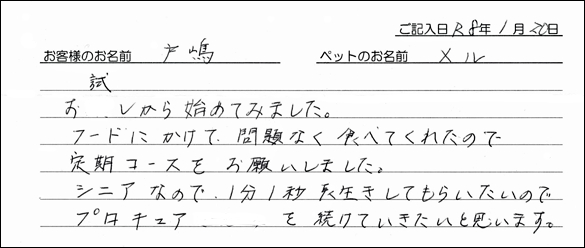 ご記入日 R8年1月20日
お客様のお名前 戸嶋 ペットのお名前 メル
試
お しから始めてみました。
フードにかけて、問題なく食べてくれたので
定期コースをお願いしました。
シニアなので、1分1秒長生きしてもらいたいので
プロキュア を続けていきたいと思います。